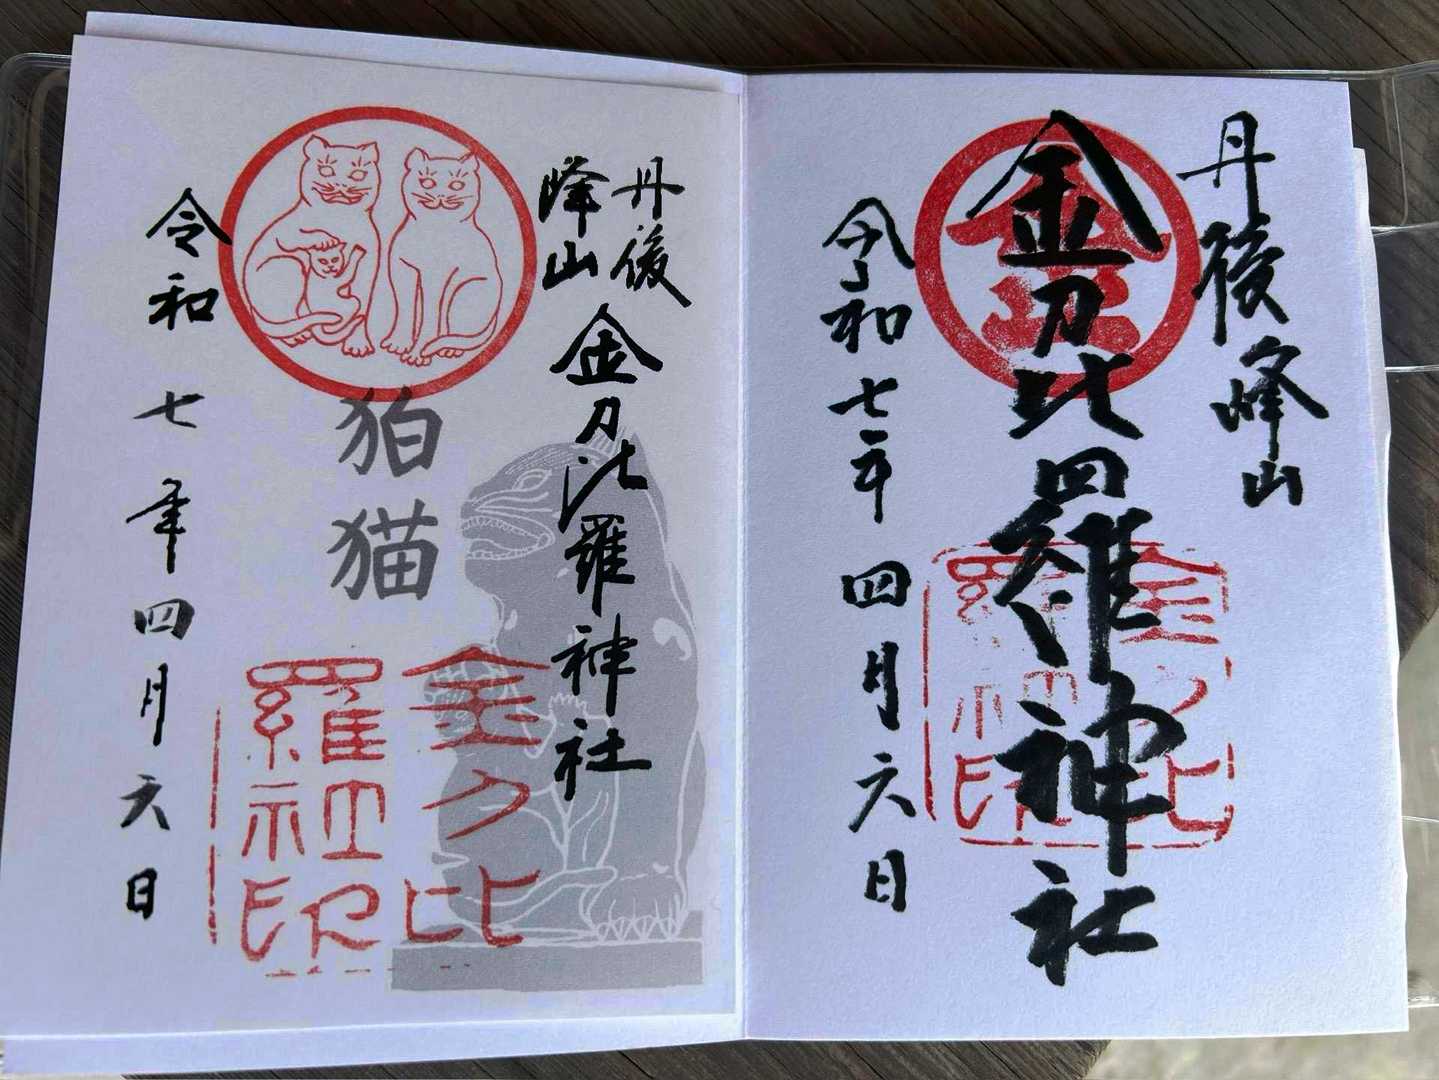 丹後峰山
金刀比羅神社
令和七年四月六日
金刀比
羅社印
丹後
峰山
金刀比羅神社
狛猫
令和七年四月六日
金刀比
羅社印